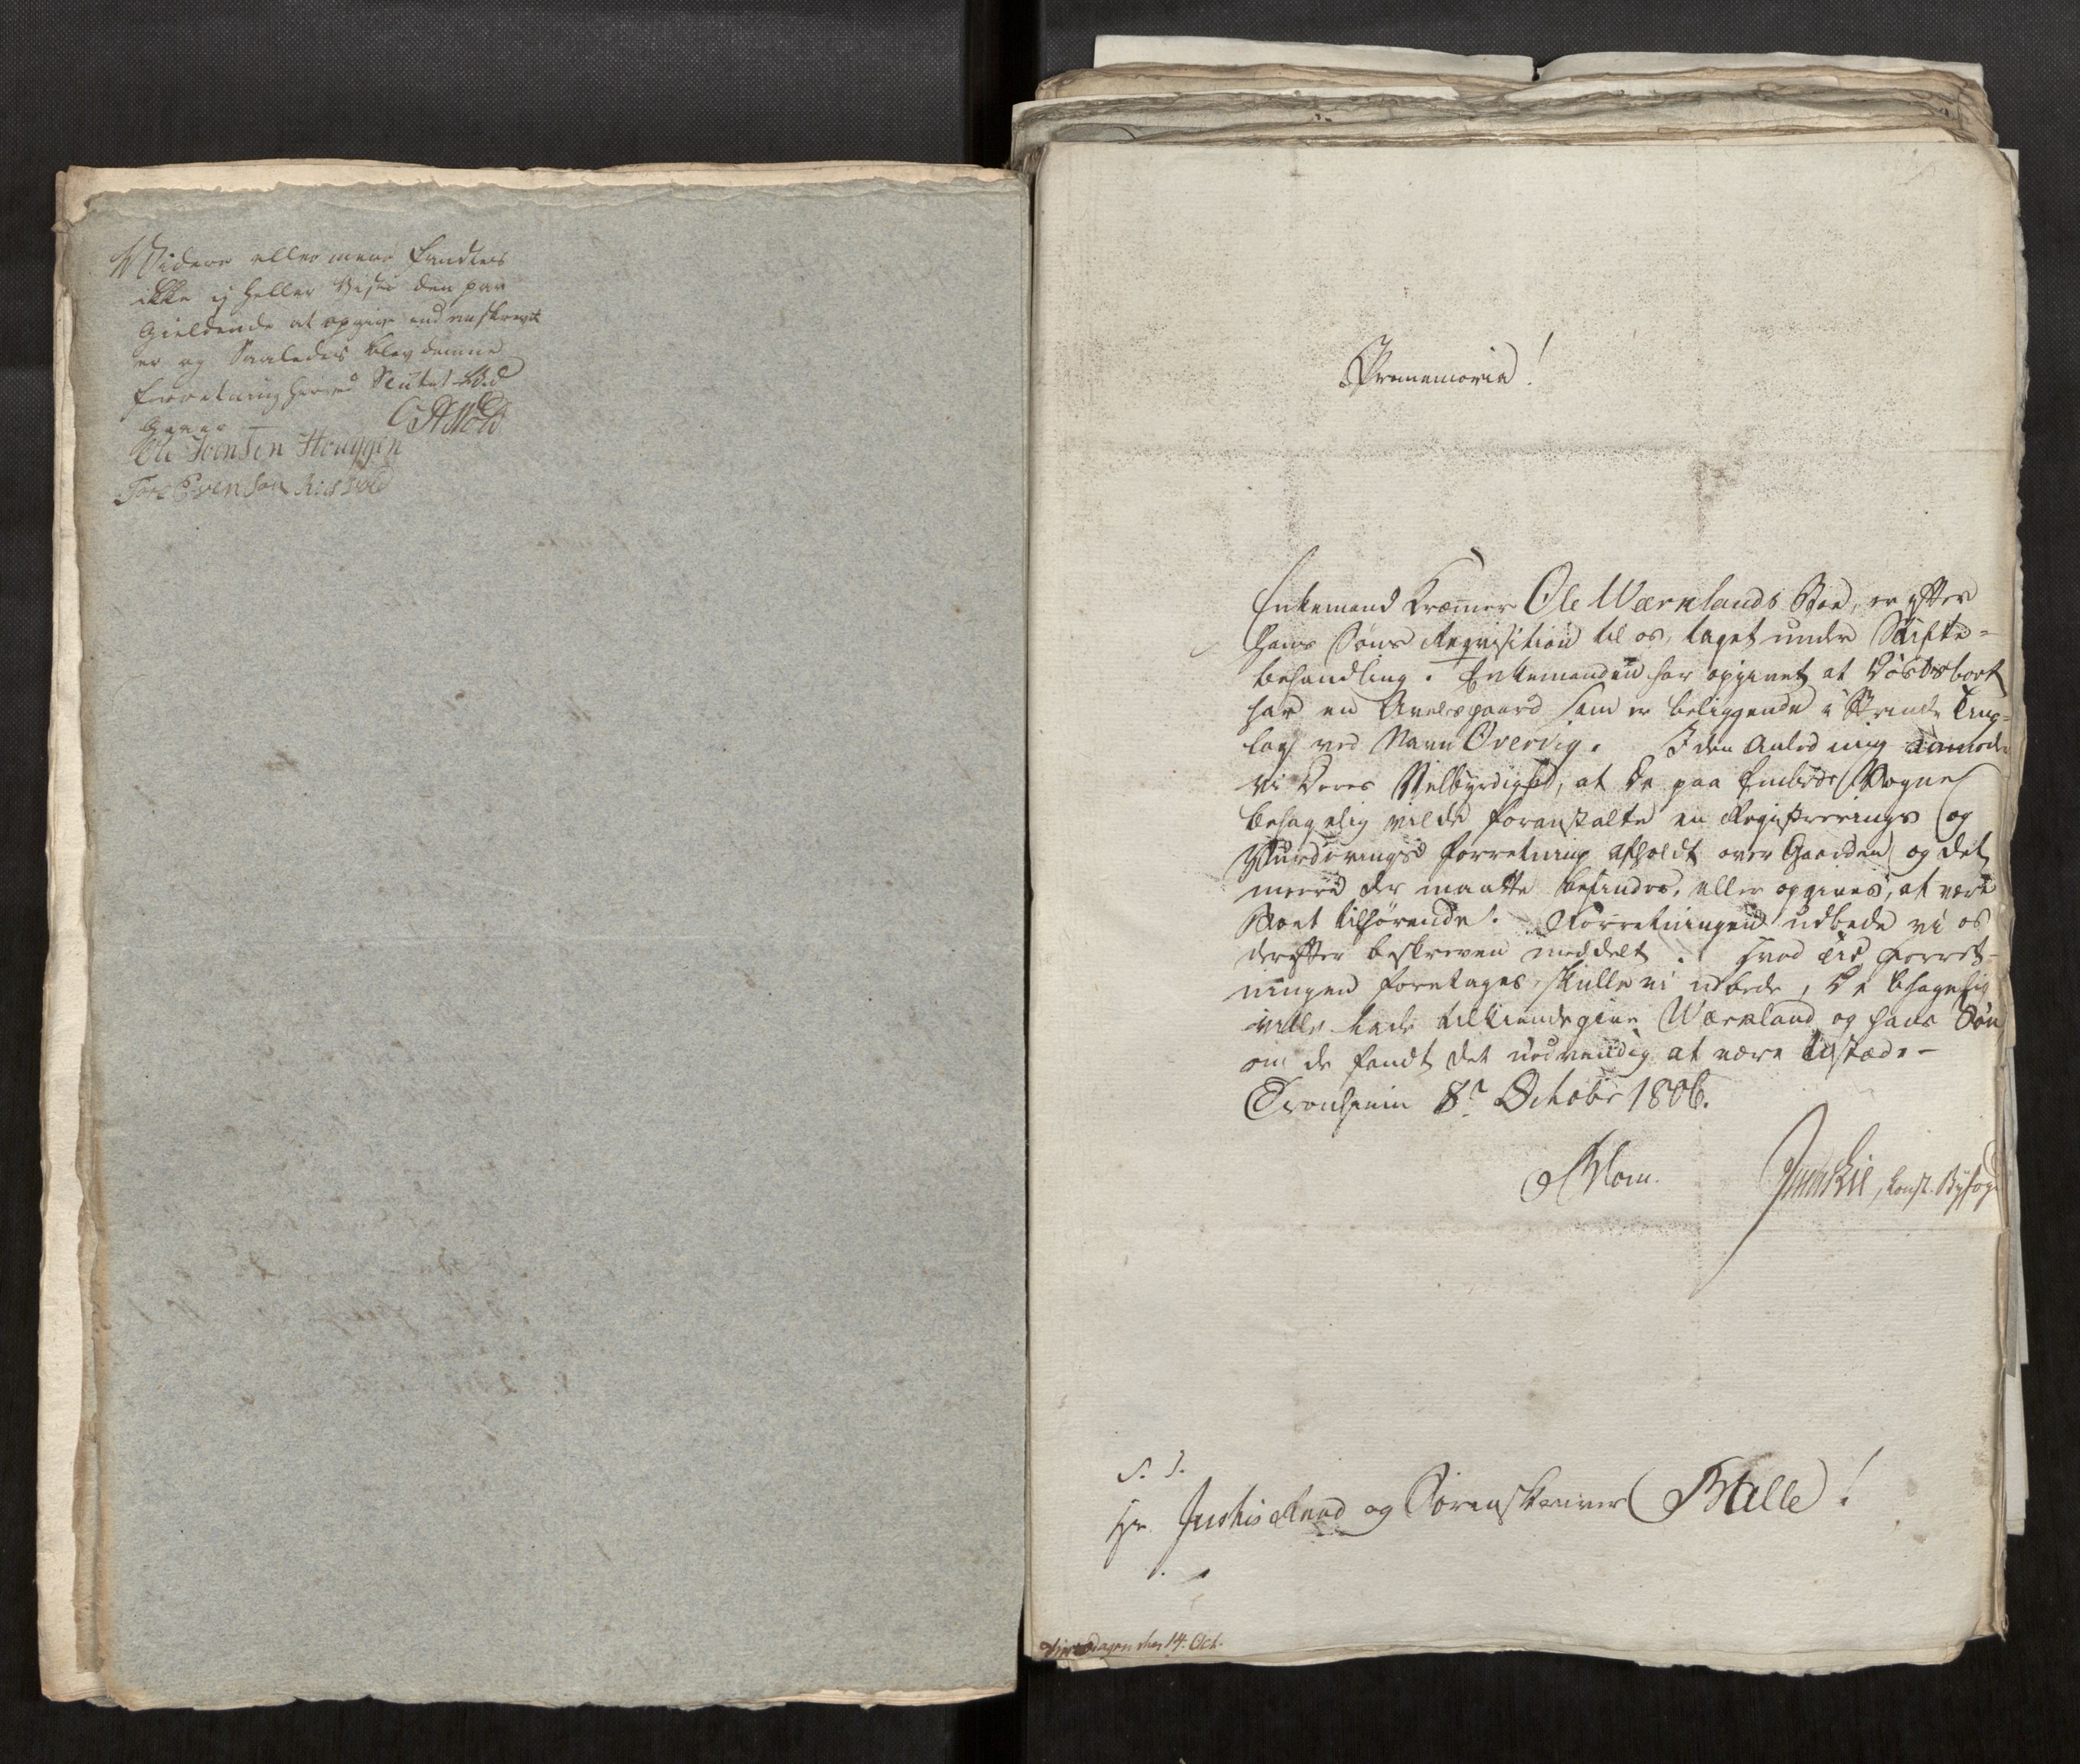 Widere eller mere fandtes
ikke ej heller viste den paa
Gieldende at opgive end anskrevet
er og Saaledes blev denne
forretning herved Sluttet
Ole Joensen Houggen
Tore Evensen
Promemoria!
Enkemand Kræmer Ole Wærnlands Boe, er efter
hans Søns Reqvisition til os, taget under Skifte-
behandling. Enkemanden har opgivet at Boet
har en Avelsgaard som er beliggende i Strinde Ting-
laug ved Navn Overvig. I den Anledning anmode
vi Deres Velbyrdighed, at De paa Embeds Vegne
behagelig vilde foranstalte en Registrerings og
Vurderings Forretning afholdt over Gaarden og det
meere der maatte befindes, eller opgives, at være
Boet tilhørende. Forretningen udbede vi os
derefter beskreven meddelt. Hvad Tid Forret-
ningen foretages, skulle vi udbede, De behagelig
ville lade tilkiendegive Wærnland og hans Søn
om de fandt det nødvendig at være tilstæde-
Tronhiem 8de Octobr 1806.
Blom. , const. Byfog
S. T.
Hr. Justisraad og Sorenskriver Balle!
dagen den 14. Oct.